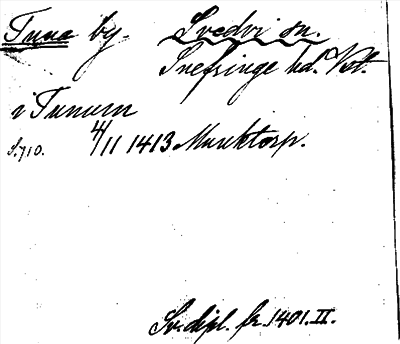 Tuna by. Svedvi sn.
Snefringe hd. Vstl.
i Tunum
S. 710. 4/11 1413 Munktorp.
Sv. dipl. fr. 1401. II.